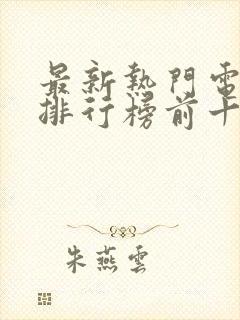 最新熱門電
排行榜前十
朱燕雲